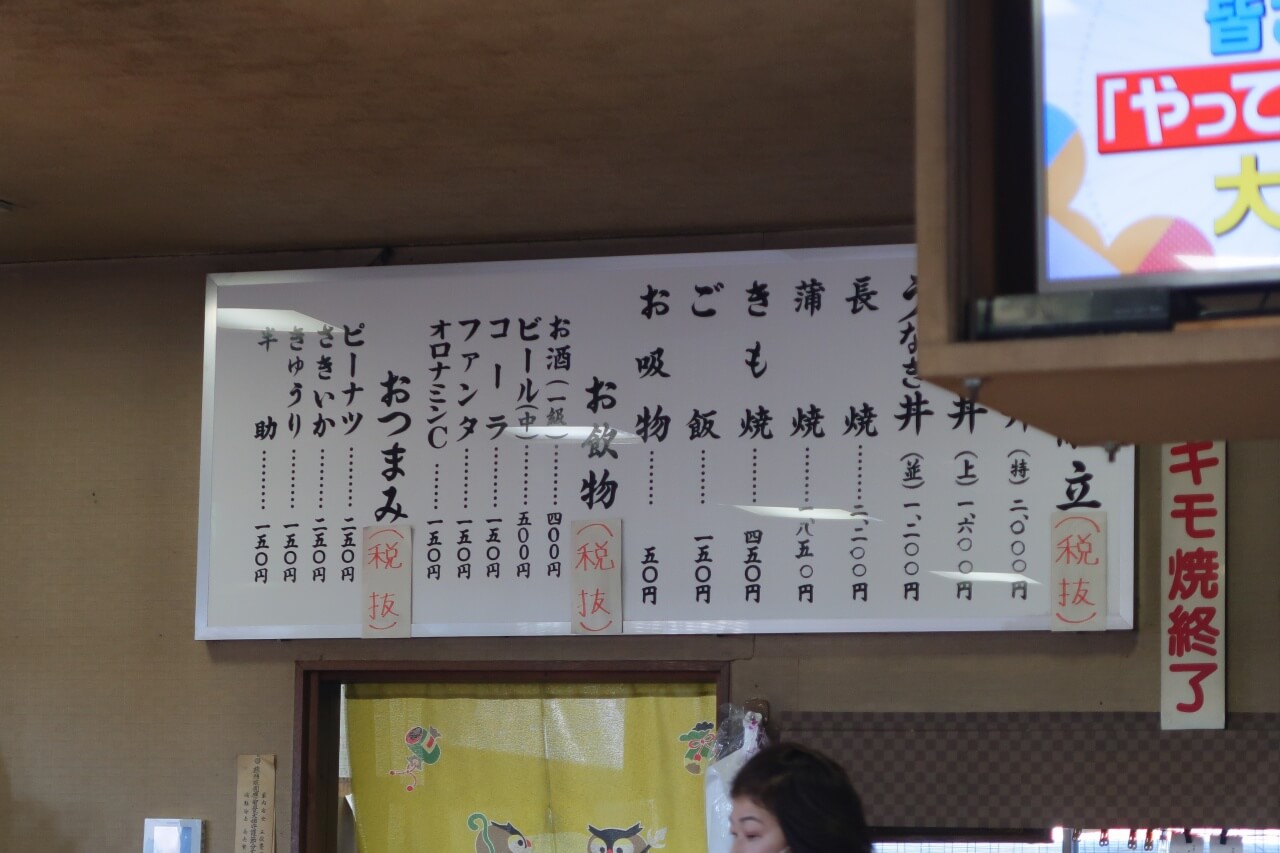 立
(税抜)
(特) 二、〇〇〇円
丼 (上) 一、六〇〇円
うなき丼 (並) 一、二〇〇円
長焼………二、二〇〇円
蒲焼………一、八五〇円
きも焼………四五〇円
ご飯………一五〇円
お吸物………五〇円
お飲物
(税抜)
お酒(一級)………四〇〇円
ビール(中)………五〇〇円
コーラ………一五〇円
ファンタ………一五〇円
オロナミンC………一五〇円
おつまみ
(税抜)
ピーナツ………二五〇円
さきいか………二五〇円
きゅうり………一五〇円
半助………一五〇円
キモ焼終了
皆
「やって
大